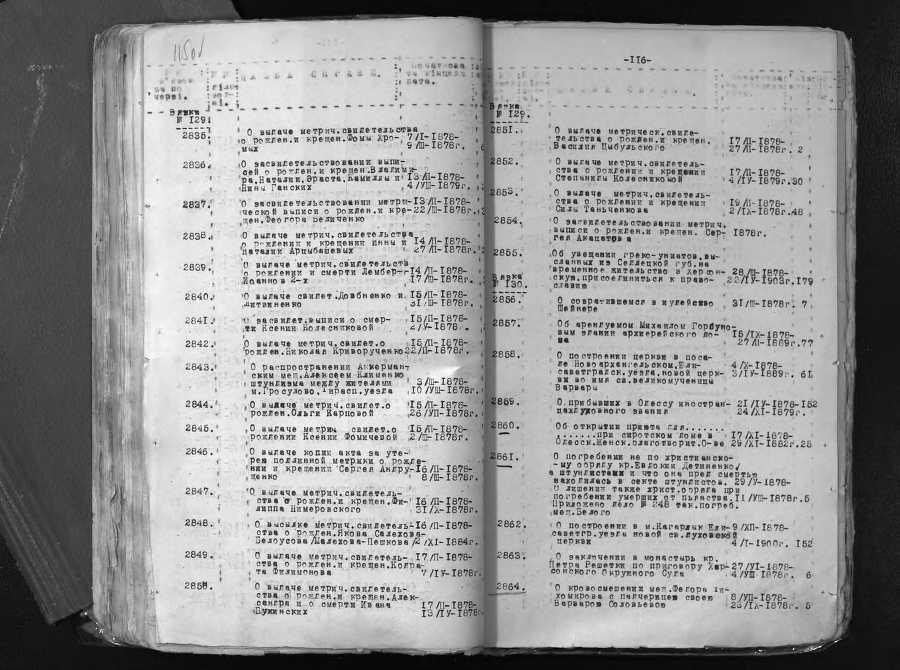 115об
Вязка
№ I29.
2835.
О выдаче метрич.свидетельства
о рожден.и крещен.Фомы Хро-
мых
7/I-I878-
9/Ш-I878г.
2836.
О засвидетельствовании выпи-
сей о рожден.и крещен.Владими-
ра,Наталии,Эраста,Камиллы и
Нины Ганских
I3/П-I878-
4/УШ-I879г.
2837.
О засвидетельствовании метри-
ческой выписи о рожден.и кре-
щен.Феодора Величенко
I3/П-I878-
22/Ш-I878г.
2838.
О выдаче метрич.свидетельства
о рождении и крещении Инны и
Наталии Арцыбашевых
I4/П-I878-
27/П-I878г.
2839.
О выдаче метрич.свидетельств
о рождении и смерти Дембер-
Иоаннов 2-х
I4/П-I878-
I7/Ш-I878г.
2840.
О выдаче свидет.Довбненко и
Дитвиненко
I5/П-I878-
3I/Ш-I878г.
284I.
О засвидет.выписи о смер-
ти Ксении Колесниковой
I5/П-I878-
2/У-I878г.
2842.
О выдаче метрич.свидет.о
рожден.Николая Криворученко
I5/П-I878-
22/П-I878г.
2843.
О распространении Аккерман-
ским мещ.Алексеем Клименко
штундизма между жителями
м.Гросулово,Тирасп.уезда
3/Ш-I878-
I0/УШ-I878г.
2844.
О выдаче метрич.свидет.о
рожден.Ольги Карповой
I5/П-I878-
26/УП-I878г.
2845.
О выдаче метрич.свидет.о
рождении Ксении Фомичевой
I5/П-I878-
2/Ш-I878г.
2846.
О выдаче копии акта за уте-
рею подлинной метрики о рожде-
нии и крещении Сергея Андру-
щенко
I6/П-I878-
8/Ш-I878г.
2847.
О выдаче метрич.свидетель-
ства о рожден.и крещен.Фи-
липпа Нимеровского
I6/П-I878-
3I/X-I878г.
2848.
О высылке метрич.свидетель-
ства о рожден.Якова Салехова-
Белоусова/Малехова-Пешкова/
I6/П-I878-
2/XI-I884г.
2849.
О выдаче метрич.свидетель-
ства о рожден.и крещен.Кодра-
та Филимонова
I7/П-I878-
7/IУ-I878г.
2850.
О выдаче метрич.свидетель-
ства о рожден.и крещен.Алек-
сандра и о смерти Ивана
Лужинских
I7/П-I878-
I3/IУ-I878г.
-II6-
Вязка
№ I29.
285I.
О выдаче метрическ.свиде-
тельства о рожден.и крещен.
Василия Цыбульского
I7/П-I878-
27/П-I878г. 2
2852.
О выдаче метрич.свидетель-
ства о рождении и крещении
Степаниды Колесниковой
I7/П-I878-
4/IУ-I879г.30
2853.
О выдаче метрич.свидетель-
ства о рождении и крещении
Силы Таньченкова
I9/П-I878-
2/IX-I878г.48
2854.
О засвидетельствовании метрич.
выписи о рожден.и крещен. Сер-
гея Акацатова
I878г.
2855.
Об увещании греко-униатов,вы-
сланных из Седлецкой губ.на
временное жительство в Херсон-
скую,присоединиться к право-
славию
28/Ш-I878-
22/IУ-I903г.I79
Вязка
№ I30.
2856.
О совратившемся в иудейство
Шейнере
3I/Ш-I878г. 7
2857.
Об арендуемом Михаилом Горбуно-
вым здании архиерейского до-
ма
I5/IX-I878-
27/П-I889г.77
2858.
О построении церкви в поса-
де Новоархангельском,Ели-
саветградск.уезда,новой церк-
ви во имя св.великомученицы
Варвары
4/X-I878-
3/IУ-I889г. 6I
2859.
О прибывших в Одессу иностран-
цах духовного звания
2I/IУ-I878-I52
24/XI-I879г.
2860.
Об открытии приюта для........
.......при сиротском доме в
Одесск.Женск.благотворит.О-ве
I7/XI-I878-
29/XI-I882г.25
286I.
О погребении не по христианско-
-му обряду кр.Евдокии Детиненко/
а штундистами и что она пред смертью
находилась в секте штундистов.
О лишении также христ.обряда при
погребении умерших от пьянства.
Приложено дело № 248 так.погреб.
мещ.Белого
29/У-I878-
II/УШ-I878г.5
2862.
О построении в м.Кагарлык Ели-
саветгр.уезда новой св.Духовской
церкви
9/XП-I878-
4/I-I900г. I52
2863.
О заключении в монастырь кр.
Петра Решетки по приговору Хер-
сонского Окружного Суда
27/УI-I878-
4/УШ-I878г. 6
2864.
О кровосмешении мещ.Федора Ти-
хомирова с падчерицею своею
Варварою Соловьевою
8/УП-I878-
25/IX-I878г. 5